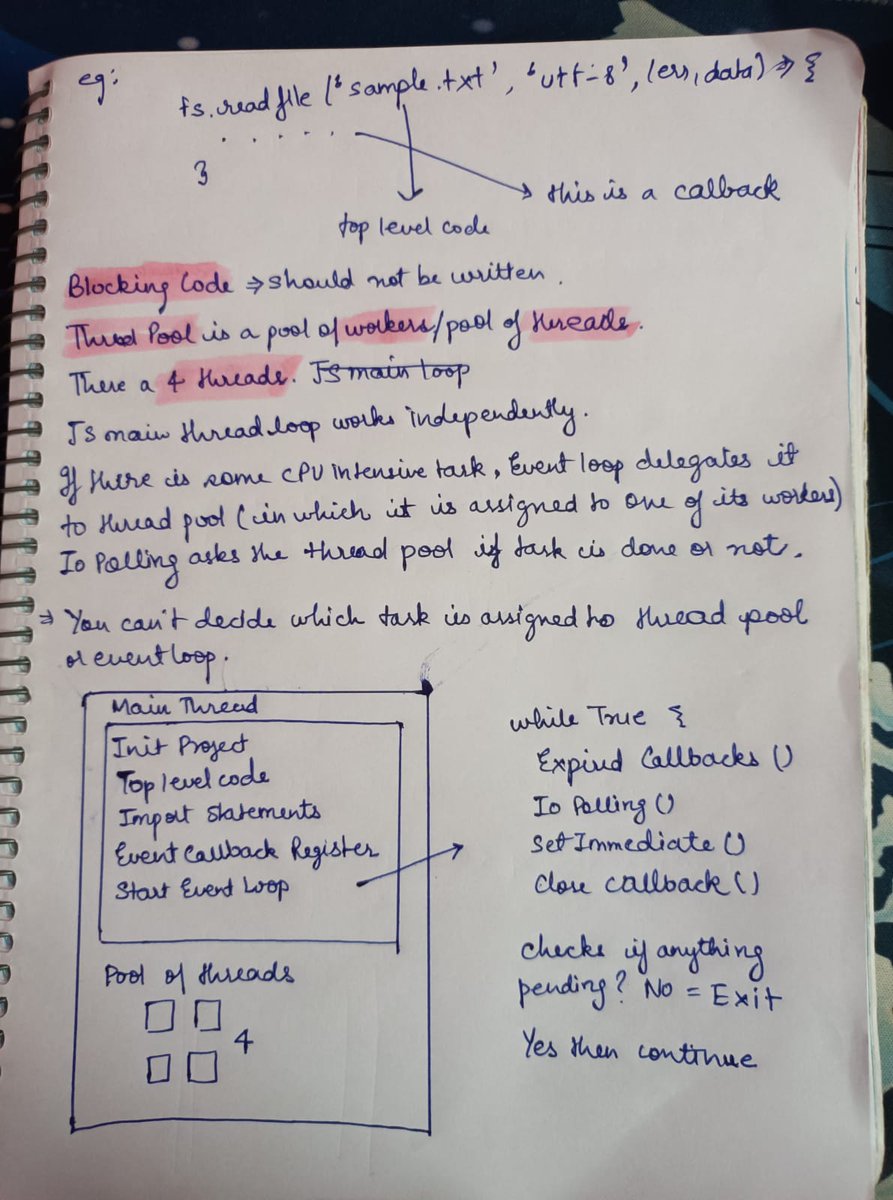 eg:
fs.readfile ('sample.txt', 'utf-8', (err, data) => {
. . . . .
}
this is a calback
top level code
Blocking Code => should not be written.
Thread Pool is a pool of workers/pool of threads.
There a 4 threads. JS main loop
JS main thread loop works independently.
If there is some CPU intensive task, Event loop delegates it
to thread pool (in which it is assigned to one of its workers)
Io Polling asks the thread pool if task is done or not.
=> You can't decide which task is assigned to thread pool
or event loop.
Main Thread
Init Project
Top level code
Import Statements
Event Callback Register
Start Event Loop
Pool of threads
4
while True {
Expired Callbacks ()
Io Polling ()
Set Immediate ()
Close callback ()
checks if anything
pending? No = Exit
Yes then continue